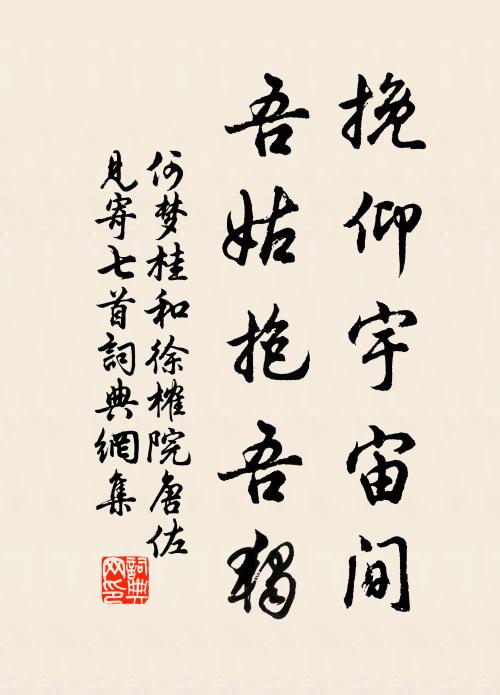 挽仰宇宙间
吾姑抱吾独
何梦桂和徐榷院唐佐
见寄七首詞典網集
詞典
网印